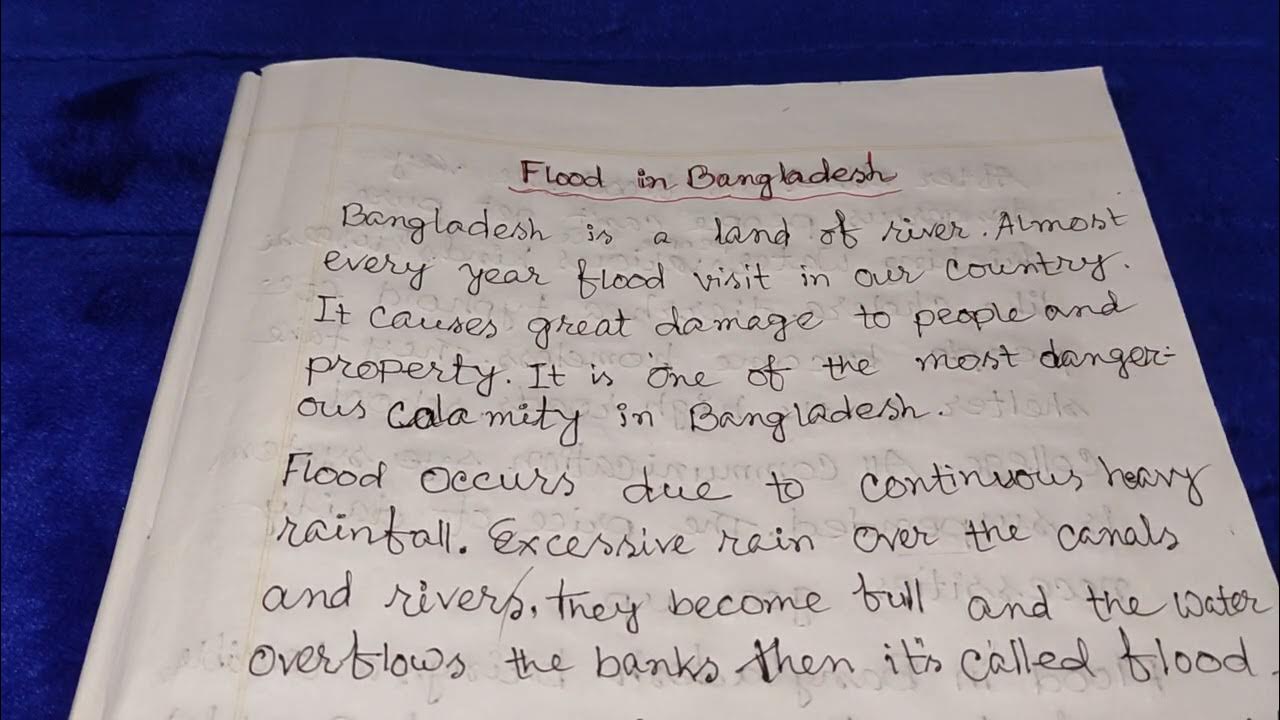 Flood in Bangladesh
Bangladesh is a land of river. Almost
every year flood visit in our country.
It causes great damage to people and
property. It is one of the most danger-
ous calamity in Bangladesh.
Flood occurs due to continuous heavy
rainfall. Excessive rain over the canals
and rivers, they become full and the water
overflows the banks then it's called flood.